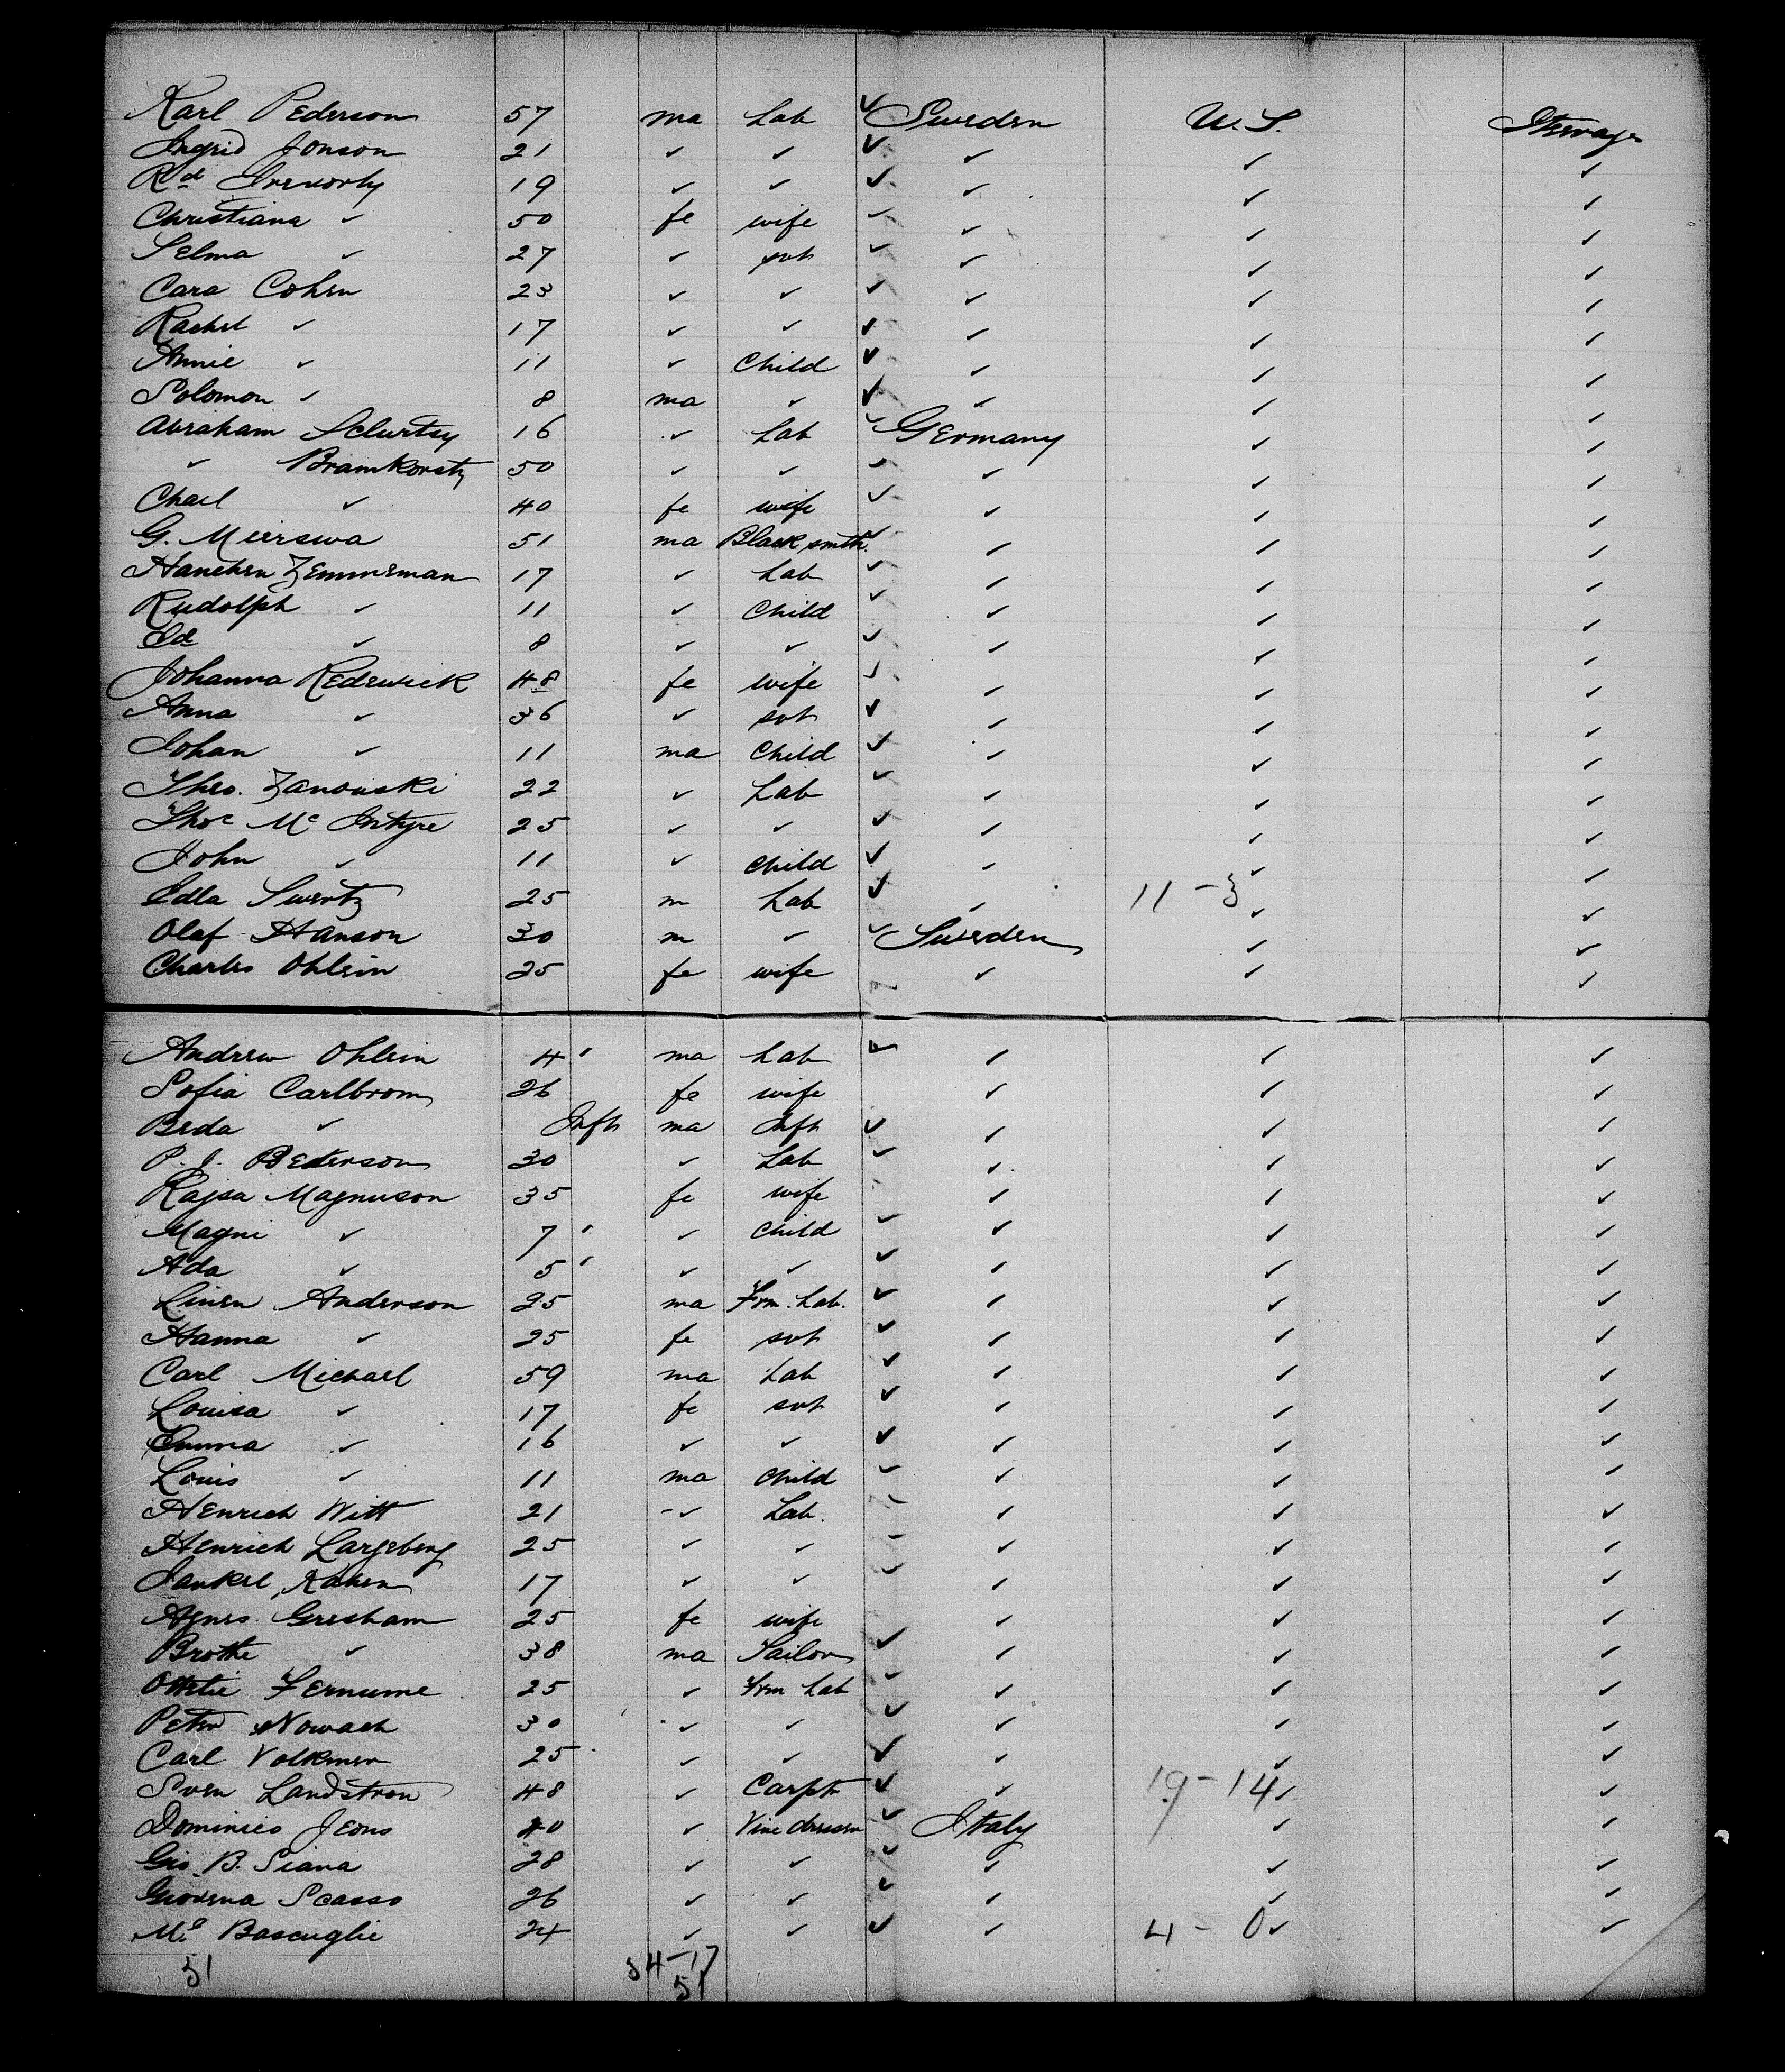 Karl Pederson 57 ma Lab ✓ Sweden U.S. Steerage
Ingrid Jonson 21 ✓ ✓ ✓ ✓ ✓ ✓
Rd 19 ✓ ✓ ✓ ✓ ✓ ✓
Christiana ✓ 50 fe wife ✓ ✓ ✓ ✓
Selma ✓ 27 ✓ svt ✓ ✓ ✓ ✓
Cara Cohen 23 ✓ ✓ ✓ ✓ ✓ ✓
Rachel ✓ 17 ✓ ✓ ✓ ✓ ✓ ✓
Annie ✓ 11 ✓ Child ✓ ✓ ✓ ✓
Solomon ✓ 8 ma ✓ ✓ ✓ ✓ ✓
Abraham 16 ✓ Lab ✓ Germany ✓ ✓
✓ Bramkorsty 50 ✓ ✓ ✓ ✓ ✓ ✓
Chael ✓ 40 fe wife ✓ ✓ ✓ ✓
G. Meerswa 51 ma Blacksmth. ✓ ✓ ✓ ✓
Hanchen Zemmerman 17 ✓ Lab ✓ ✓ ✓ ✓
Rudolph ✓ 11 ✓ Child ✓ ✓ ✓ ✓
Ed ✓ 8 ✓ ✓ ✓ ✓ ✓ ✓
Johanna Rederwick 48 fe wife ✓ ✓ ✓ ✓
Anna ✓ 36 ✓ svt ✓ ✓ ✓ ✓
Johan ✓ 11 ma Child ✓ ✓ ✓ ✓
Theo. Zanowski 22 ✓ Lab ✓ ✓ ✓ ✓
Thos Mc Intyre 25 ✓ ✓ ✓ ✓ ✓ ✓
John ✓ 11 ✓ child ✓ ✓ ✓ ✓
Edla Swertz 25 m Lab ✓ ✓ 11-3 ✓ ✓
Olaf Hanson 30 m ✓ ✓ Sweden ✓ ✓
Charles Ohlein 25 fe wife ✓ ✓ ✓
Andrew Ohlein 4 ma Lab ✓ ✓ ✓ ✓
Sofia Carlbrom 26 fe wife ✓ ✓ ✓
Beda ✓ Inft ma Inft ✓ ✓ ✓ ✓
P. J. Pederson 30 ✓ Lab ✓ ✓ ✓ ✓
Kajsa Magnuson 35 fe wife ✓ ✓ ✓
Magni ✓ 7 ✓ child ✓ ✓ ✓ ✓
Ada ✓ 5 ✓ ✓ ✓ ✓ ✓ ✓
Linen Anderson 25 ma Frm. Lab. ✓ ✓ ✓ ✓
Hanna ✓ 25 fe svt ✓ ✓ ✓ ✓
Carl Michael 59 ma Lab ✓ ✓ ✓ ✓
Louisa ✓ 17 fe svt ✓ ✓ ✓ ✓
Emma ✓ 16 ✓ ✓ ✓ ✓ ✓ ✓
Louis ✓ 11 ma child ✓ ✓ ✓ ✓
Henrich Witt 21 ✓ Lab. ✓ ✓ ✓
Henrich Largeberg 25 ✓ ✓ ✓ ✓ ✓
Jankel Kahen 17 ✓ ✓ ✓ ✓ ✓ ✓
Agnes Gresham 25 fe wife ✓ ✓ ✓
Brothe ✓ 38 ma Sailor ✓ ✓ ✓ ✓
Ottelie Fernume 25 ✓ Frm Lab ✓ ✓ ✓ ✓
Peter Nowach 30 ✓ ✓ ✓ ✓ ✓ ✓
Carl Volkmer 25 ✓ ✓ ✓ ✓ ✓ ✓
Sven Landstrom 48 ✓ Carptr ✓ ✓ 19-14 ✓ ✓
Dominico Jeons 40 ✓ Vine dresser ✓ Italy ✓ ✓
Gio B. Siana 28 ✓ ✓ ✓ ✓ ✓ ✓
Giovena Scasso 26 ✓ ✓ ✓ ✓ ✓ ✓
Ma Bascuglie 24 ✓ ✓ ✓ ✓ 4-0 ✓ ✓
51 34-17
51